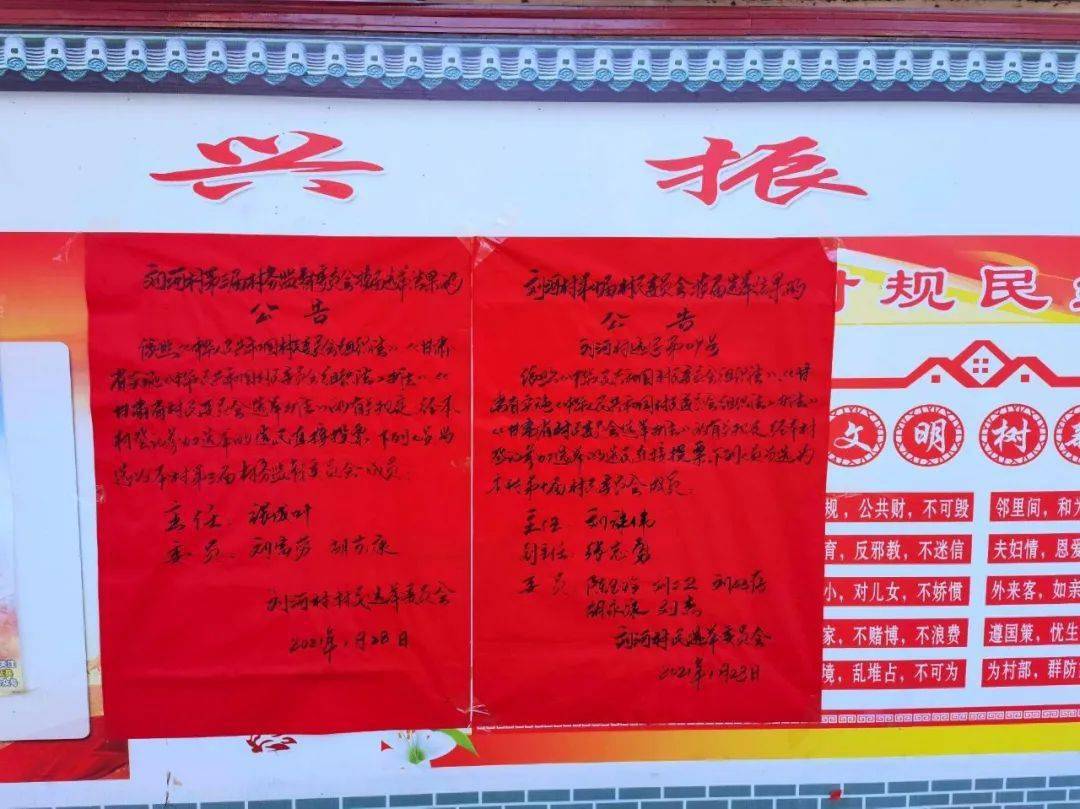 兴 振
刘河村第三届村务监督委员会换届选举结果的
公告
依照《中华人民共和国村民委员会组织法》《甘肃
省实施《中华人民共和国村民委员会组织法》办法》《
甘肃省村民委员会选举办法》的有关规定 经本
村登记参加选举的选民直接投票,下列人员当
选为本村第三届村务监督委员会成员:
主任:
委员: 刘富芳 胡
刘河村村民选举委员会
2021年1月28日
刘河村第十届村民委员会换届选举结果的
公告
刘河村选字第 号
依照《中华人民共和国村民委员会组织法》、《甘
肃省实施《中华人民共和国村民委员会组织法》办法》
《甘肃省村民委员会选举办法》的有关规定 经本村
登记参加选举的选民直接投票,下列人员当选为
本村第十届村民委员会成员:
主任: 刘 伟
副主任: 张志勇
委员: 陈 刘 卫 刘
胡永 刘
刘河村民选举委员会
2021年1月28日
规民
文 明 树
规,公共财,不可毁
育,反邪教,不迷信
小,对儿女,不娇惯
家,不赌博,不浪费
境,乱堆占,不可为
邻里间,和为
夫妇情,恩爱
外来客,如亲
遵国策,优生
为村部,群防